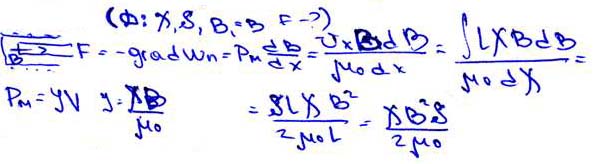 (Ф: χ, S, B₁=B F-?)
B F = -grad Wn = Pм dB/dx = VχBdB/μ₀dx = ∫lχBdB/μ₀dX =
Pм = JV J = χB/μ₀ = SlχB²/2μ₀l = χB²S/2μ₀